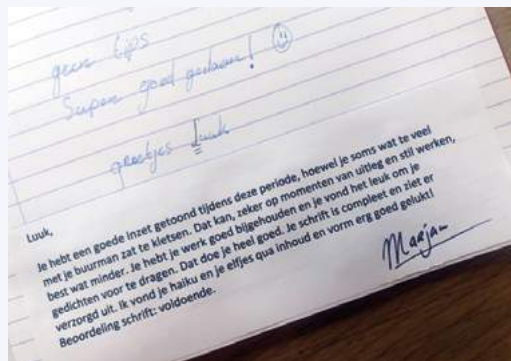 geen tips
Super goed gedaan!
groetjes Luuk
Luuk,
Je hebt een goede inzet getoond tijdens deze periode, hoewel je soms wat te veel
met je buurman zat te kletsen. Dat kan, zeker op momenten van uitleg en stil werken,
best wat minder. Je hebt je werk goed bijgehouden en je vond het leuk om je
gedichten voor te dragen. Dat doe je heel goed. Je schrift is compleet en ziet er
verzorgd uit. Ik vond je haiku en je elfjes qua inhoud en vorm erg goed gelukt!
Beoordeling schrift: voldoende.
Marjan